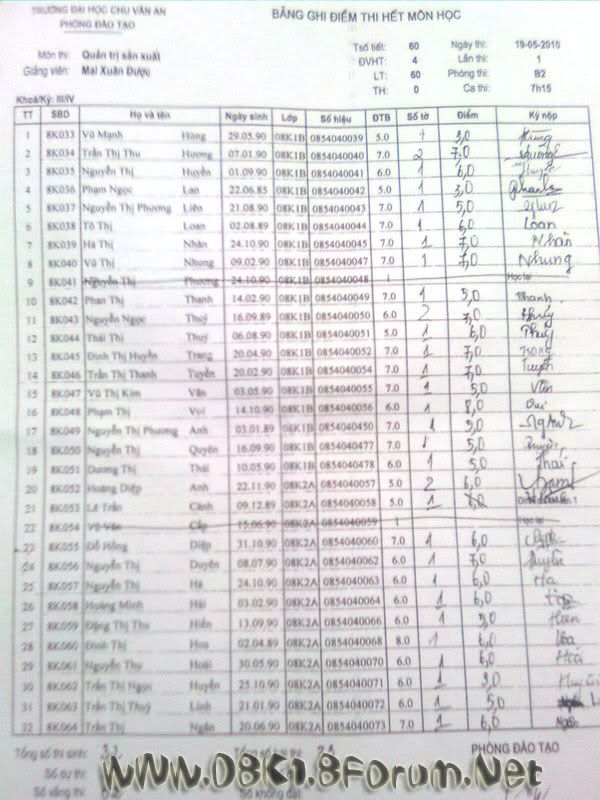 TRƯỜNG ĐẠI HỌC CHU VĂN AN
PHÒNG ĐÀO TẠO
BẢNG GHI ĐIỂM THI HẾT MÔN HỌC
Môn thi: Quản trị sản xuất
Giảng viên: Mai Xuân Được
Tsố tiết: 60 Ngày thi: 19-05-2010
ĐVHT: 4 Lần thi: 1
LT: 60 Phòng thi: B2
TH: 0 Ca thi: 7h15
Khoá/Kỳ: III/IV
TT SBD Họ và tên Ngày sinh Lớp Số hiệu ĐTB Số tờ Điểm Ký nộp
1 8K033 Vũ Mạnh Hùng 29.05.90 08K1B 0854040039 5.0 3,0 Hùng
2 8K034 Trần Thị Thu Hương 07.01.90 08K1B 0854040040 7.0 2 7,0 Hương
3 8K035 Nguyễn Thị Huyền 01.09.90 08K1B 0854040041 6.0 1 6,0
4 8K036 Phạm Ngọc Lan 22.06.85 08K1B 0854040042 5.0 1 3,0
5 8K037 Nguyễn Thị Phương Liên 21.08.90 08K1B 0854040043 7.0 1 5,0
6 8K038 Tô Thị Loan 02.08.89 08K1B 0854040044 7.0 1 6,0 Loan
7 8K039 Hà Thị Nhân 24.10.90 08K1B 0854040045 7.0 1 7,0 Nhân
8 8K040 Vũ Thị Nhung 09.02.90 08K1B 0854040047 7.0 1 7,0 Nhung
9 8K041 Nguyễn Thị Phương 24.10.90 08K1B 0854040048 Học lại
10 8K042 Phan Thị Thanh 14.02.90 08K1B 0854040049 7.0 1 5,0 Thanh
11 8K043 Nguyễn Ngọc Thuý 16.09.89 08K1B 0854040050 6.0 2 7,0 Thuý
12 8K044 Thái Thị Thuý 06.08.90 08K1B 0854040051 5.0 1 6,0 Thuý
13 8K045 Đinh Thị Huyền Trang 20.04.90 08K1B 0854040052 7.0 1 7,0 Trang
14 8K046 Trần Thị Thanh Tuyển 20.02.90 08K1B 0854040054 7.0 1 7,0
15 8K047 Vũ Thị Kim Vân 03.05.90 08K1B 0854040055 7.0 1 5,0 Vân
16 8K048 Phạm Thị Vui 14.10.90 08K1B 0854040056 6.0 1 Vui
17 8K049 Nguyễn Thị Phương Anh 03.01.89 08K1B 0854040450 7.0 1 5,0
18 8K050 Nguyễn Thị Quyên 16.09.90 08K1B 0854040477 7.0 5,0
19 8K051 Dương Thị Thái 10.05.90 08K1B 0854040478 6.0 1 5,0 Thái
20 8K052 Hoàng Diệp Anh 22.11.90 08K2A 0854040057 5.0 2 6,0
21 8K053 Lê Trần Cảnh 09.12.89 08K2A 0854040058 5.0 1
22 8K054 Vũ Văn 15.06.90 08K2A 0854040059 Học lại
23 8K055 Đỗ Hồng Diệp 31.10.90 08K2A 0854040060 7.0 1 6,0
24 8K056 Nguyễn Thị Duyên 08.07.90 08K2A 0854040062 6.0 1 7,0
25 8K057 Nguyễn Thị Hà 24.10.90 08K2A 0854040063 6.0 1 6,0 Hà
26 8K058 Hoàng Minh Hải 03.02.90 08K2A 0854040064 6.0 1 6,0
27 8K059 Đặng Thị Thu Hiền 13.09.90 08K2A 0854040066 6.0 1 5,0 Hiền
28 8K060 Đinh Thị Hoa 02.04.89 08K2A 0854040068 8.0 1 6,0 Hoa
29 8K061 Nguyễn Thu Hoài 30.05.90 08K2A 0854040070 6.0 1 6,0 Hoài
30 8K062 Trần Thị Ngọc Huyền 25.10.90 08K2A 0854040071 6.0 1 3,0
31 8K063 Trần Thị Thuỳ Linh 21.01.90 08K2A 0854040072 6.0 1 5,0
32 8K064 Trần Thị Ngân 20.06.90 08K2A 0854040073 7.0 1 6,0 Ngân
Tổng số thí sinh: Tổng số bài thi: PHÒNG ĐÀO TẠO
Số dự thi:
Số vắng thi: Số không đạt:
WWW.08K1.8Forum.Net